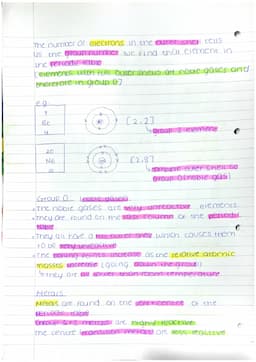 The number of electrons in the outer shell tells
us the group number we find that element in
the periodic table
(elements with full outer shells are noble gases and
therefore in group 0)
e.g
9
Be
4
[2,2]
group 2 element
20
Ne
10
[2,8]
complete outer shell so
group 0 (noble gas)
Group 0 (noble gases)
The noble gases are very unreactive elements
They are found on the of the periodic
table
They all have a full outer shell which causes them
to be very unreactive
The boiling points increase as the relative atomic
masses increase (going down the group)
They are all lower than room temperature
Metals
Metals are found on the of the
periodic table
metals are highly reactive
the central transition metals are less reactive